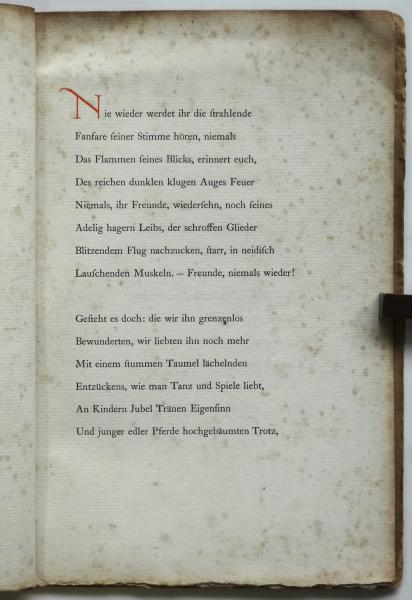 Nie wieder werdet ihr die ſtrahlende
Fanfare ſeiner Stimme hören, niemals
Das Flammen ſeines Blicks, erinnert euch,
Des reichen dunklen klugen Auges Feuer
Niemals, ihr Freunde, wiederſehn, noch ſeines
Adelig hagern Leibs, der schroffen Glieder
Blitzendem Flug nachzucken, ſtarr, in neidiſch
Lauſchenden Muskeln. – Freunde, niemals wieder!
Geſteht es doch: die wir ihn grenzenlos
Bewunderten, wir liebten ihn noch mehr
Mit einem ſtummen Taumel lächelnden
Entzückens, wie man Tanz und Spiele liebt,
An Kindern Jubel Tränen Eigenſinn
Und junger edler Pferde hochgebäumten Trotz,